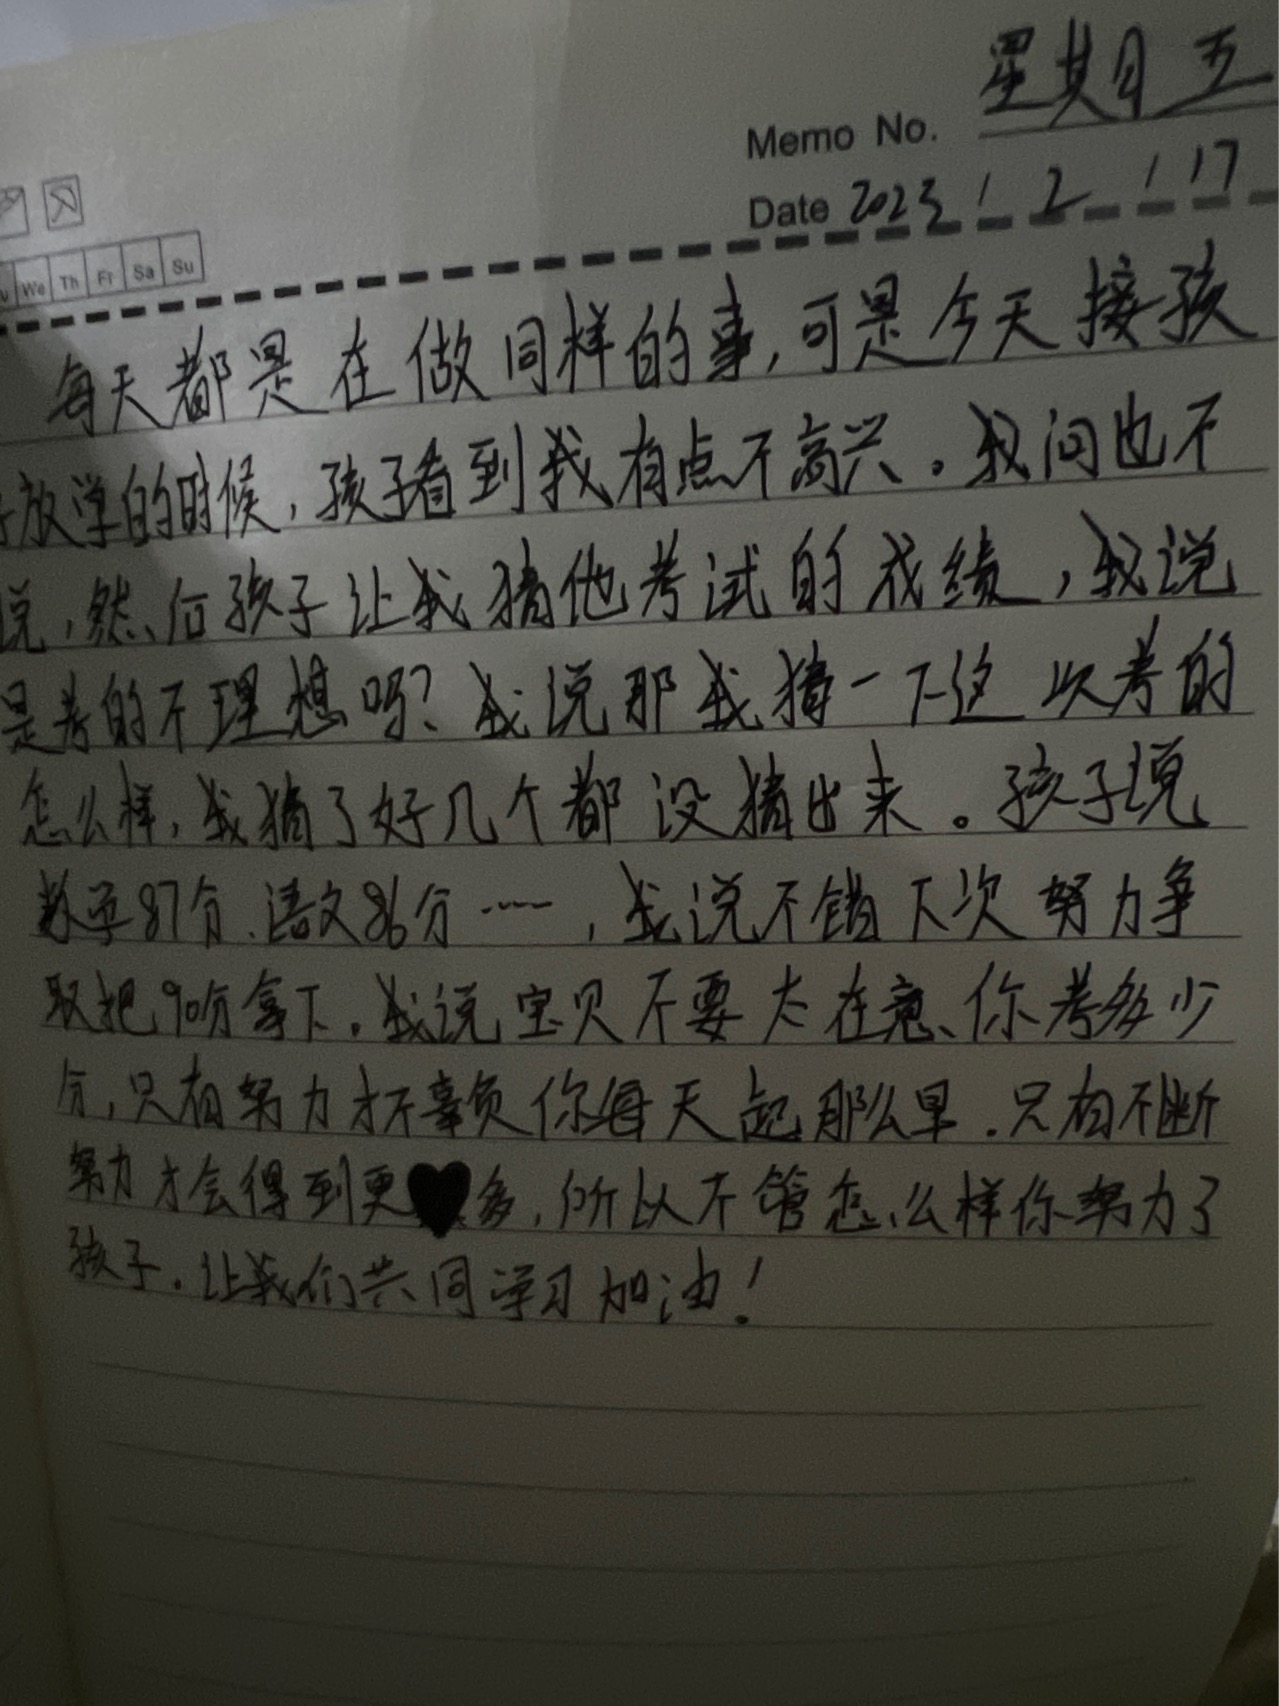 星期五
Memo No.
Date 2023 / 2 / 17
We Th Fr Sa Su
每天都是在做同样的事,可是今天接孩
子放学的时候,孩子看到我有点不高兴。我问也不
说,然后孩子让我猜他考试的成绩,我说
是考的不理想吗?我说那我猜一下这次考的
怎么样,我猜了好几个都没猜出来。孩子说
数学87分、语文86分……,我说不错下次努力争
取把90分拿下。我说宝贝不要太在意、你考多少
分,只有努力才不辜负你每天起那么早.只有不断
努力才会得到更多,所以不管怎么样你努力了
孩子.让我们共同学习加油!